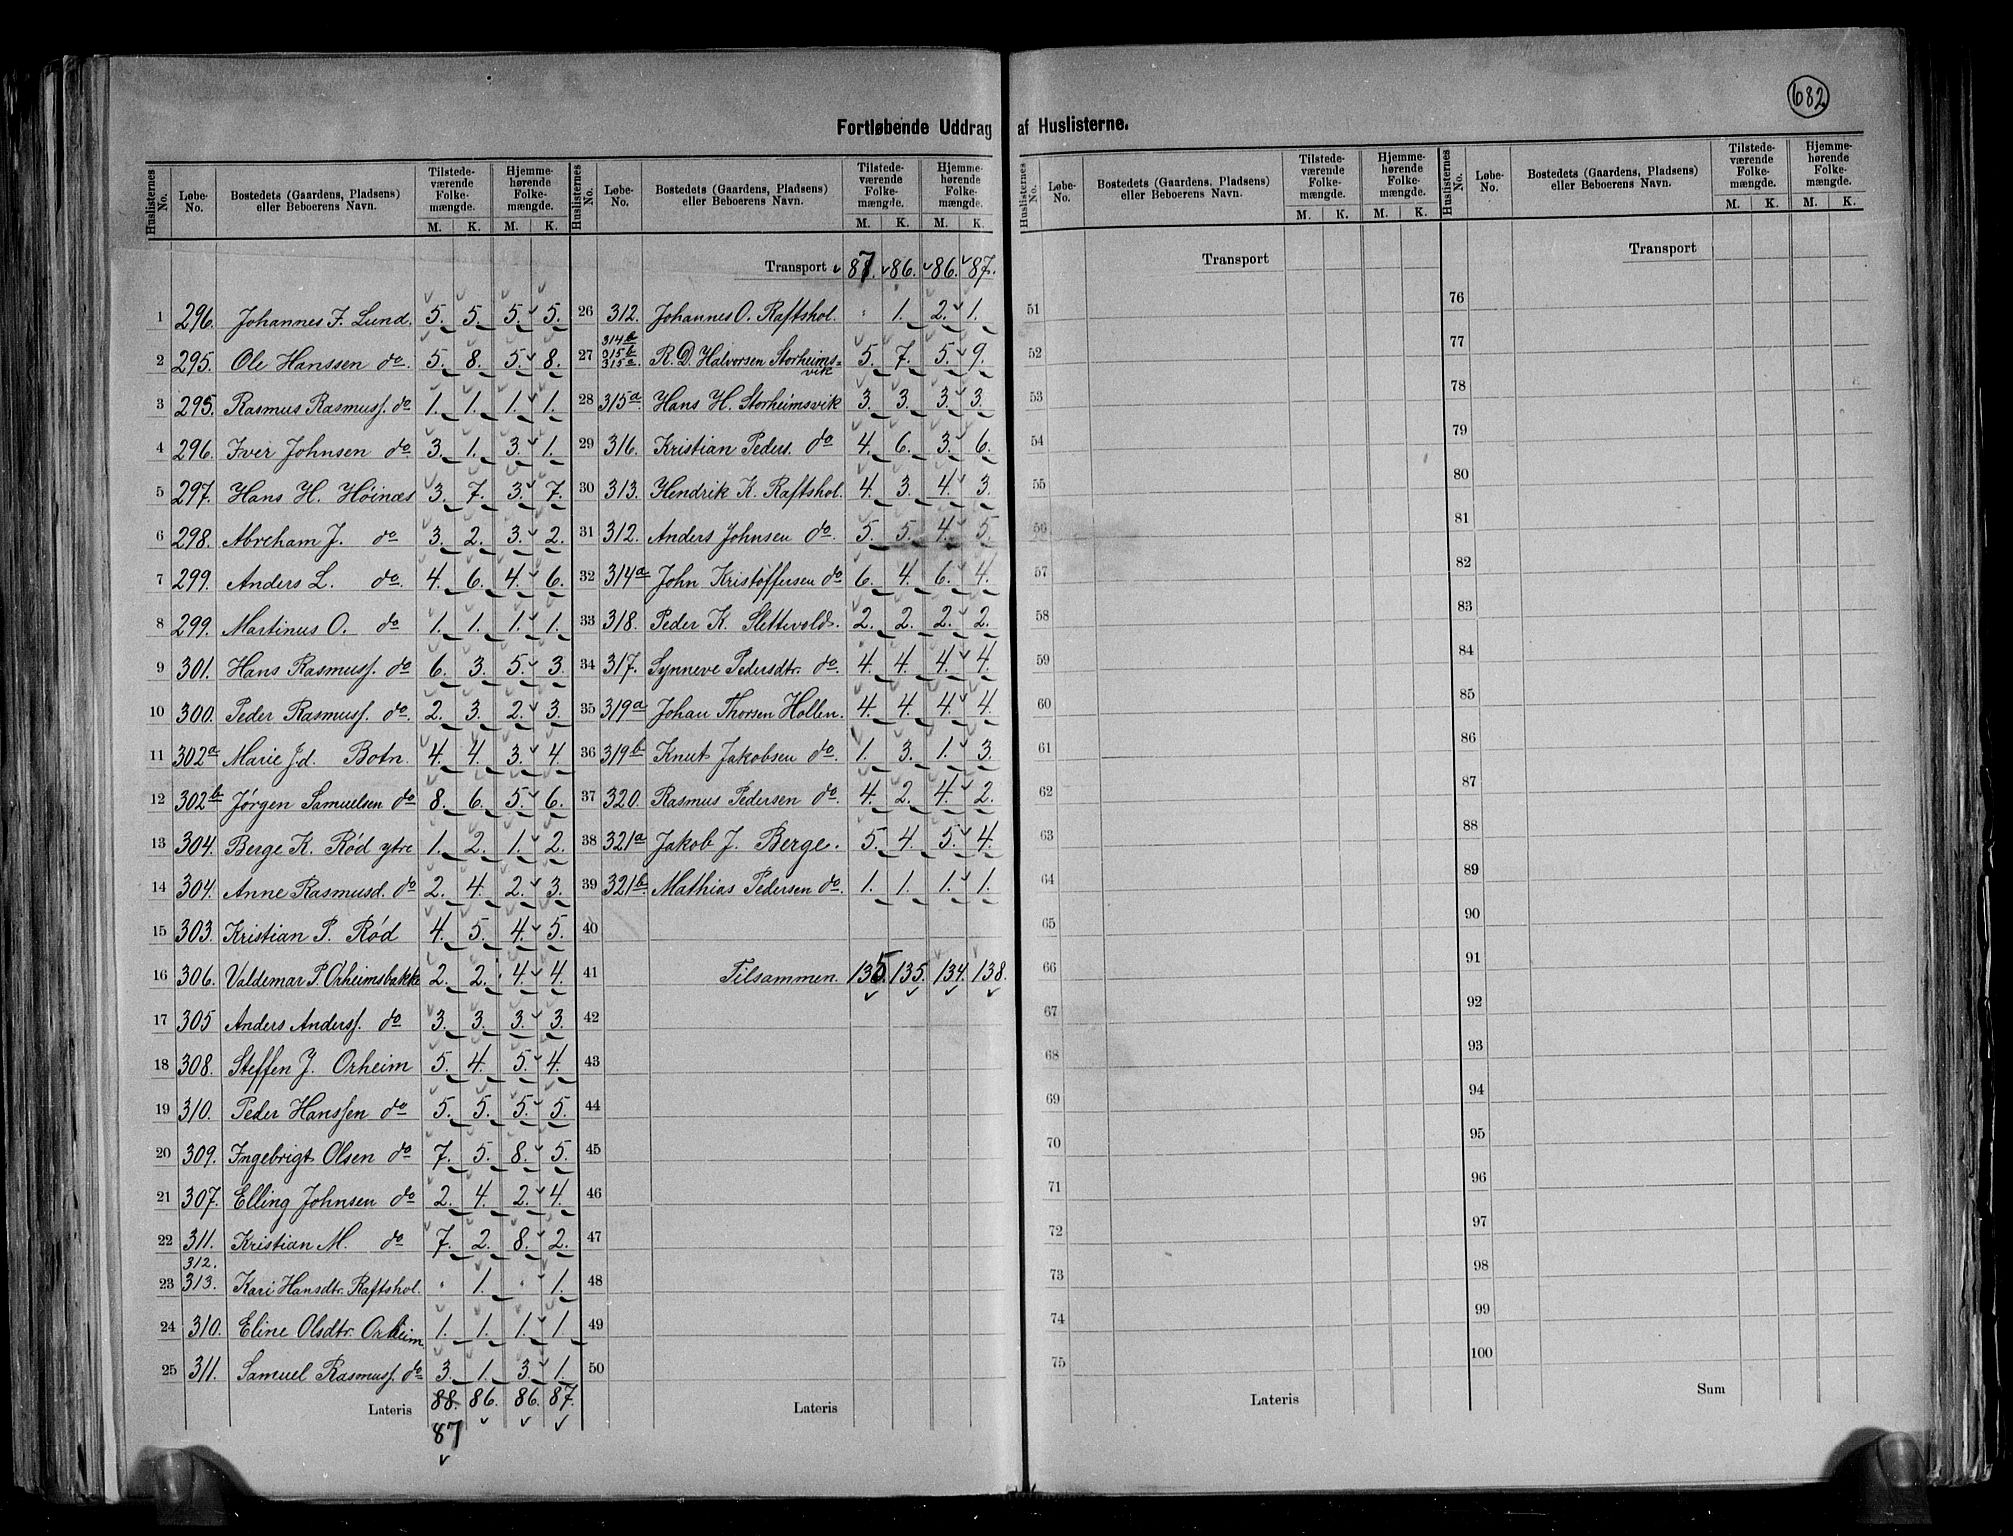 682
Fortløbende Uddrag af Huslisterne.
Huslisternes No. Løbe-No. Bostedets (Gaardens, Pladsens) eller Beboerens Navn. Tilstedeværende Folkemængde. M. K. Hjemmehørende Folkemængde. M. K.
1 296. Johannes F. Lund. 5. 5. 5. 5.
2 295. Ole Hanssen do. 5. 8. 5. 8.
3 295. Rasmus Rasmuss. do 1. 1. 1. 1.
4 296. Iver Johnsen do 3. 1. 3. 1.
5 297. Hans H. Høinæs 3. 7. 3. 7.
6 298. Abreham J. do 3. 2. 3. 2.
7 299. Anders L. do. 4. 6. 4. 6.
8 299. Martinus O. do 1. 1. 1. 1.
9 301. Hans Rasmuss. do 6. 3. 5. 3.
10 300. Peder Rasmuss. do. 2. 3. 2. 3.
11 302a Marie J.d. Botn. 4. 4. 3. 4.
12 302b Jørgen Samuelsen do 8. 6. 5. 6.
13 304. Berge K. Rød ytre 1. 2. 1. 2.
14 304. Anne Rasmusd. do 2. 4. 2. 3.
15 303. Kristian P. Rød 4. 5. 4. 5.
16 306. Valdemar P. Orheimsbakke 2. 2. 4. 4.
17 305 Anders Anderss. do 3. 3. 3. 3.
18 308. Steffen J. Orheim 5. 4. 5. 4.
19 310. Peder Hanssen do 5. 5. 5. 5.
20 309. Ingebrigt Olsen do 7. 5. 8. 5.
21 307. Elling Johnsen do 2. 4. 2. 4.
22 311. Kristian M. do 7. 2. 8. 2.
23 312. 313. Kari Hansdtr. Raftshol. " 1. " 1.
24 310. Eline Olsdtr. Orheim 1. 1. 1. 1.
25 311. Samuel Rasmuss. do 3. 1. 3. 1.
Lateris 88. 86. 86. 87.
87
Huslisternes No. Løbe-No. Bostedets (Gaardens, Pladsens) eller Beboerens Navn. Tilstedeværende Folkemængde. M. K. Hjemmehørende Folkemængde. M. K.
Transport 87. 86. 86. 87.
26 312. Johannes O. Raftshol. " 1. 2. 1.
27 314b 315b 315c R. D. Halvorsen Storheimsvik 5. 7. 5. 9.
28 315a Hans H. Storheimsvik 3. 3. 3. 3.
29 316. Kristian Peders. do 4. 6. 3. 6.
30 313. Hendrik K. Raftshol. 4. 3. 4. 3.
31 312. Anders Johnsen do. 5. 5. 4. 5.
32 314a John Kristoffersen do 6. 4. 6. 4.
33 318. Peder K. Slettevold. 2. 2. 2. 2.
34 317. Synneve Pedersdtr. do. 4. 4. 4. 4.
35 319a Johan Thorsen Hollen. 4. 4. 4. 4.
36 319b Knut Jakobsen do. 1. 3. 1. 3.
37 320. Rasmus Pedersen do. 4. 2. 4. 2.
38 321a Jakob J. Berge. 5. 4. 5. 4.
39 321b. Mathias Pedersen do. 1. 1. 1. 1.
40
41 Tilsammen. 135. 135. 134. 138.
42
43
44
45
46
47
48
49
50
Lateris
Huslisternes No. Løbe-No. Bostedets (Gaardens, Pladsens) eller Beboerens Navn. Tilstedeværende Folkemængde. M. K. Hjemmehørende Folkemængde. M. K.
Transport
51
52
53
54
55
56
57
58
59
60
61
62
63
64
65
66
67
68
69
70
71
72
73
74
75
Lateris
Huslisternes No. Løbe-No. Bostedets (Gaardens, Pladsens) eller Beboerens Navn. Tilstedeværende Folkemængde. M. K. Hjemmehørende Folkemængde. M. K.
Transport
76
77
78
79
80
81
82
83
84
85
86
87
88
89
90
91
92
93
94
95
96
97
98
99
100
Sum